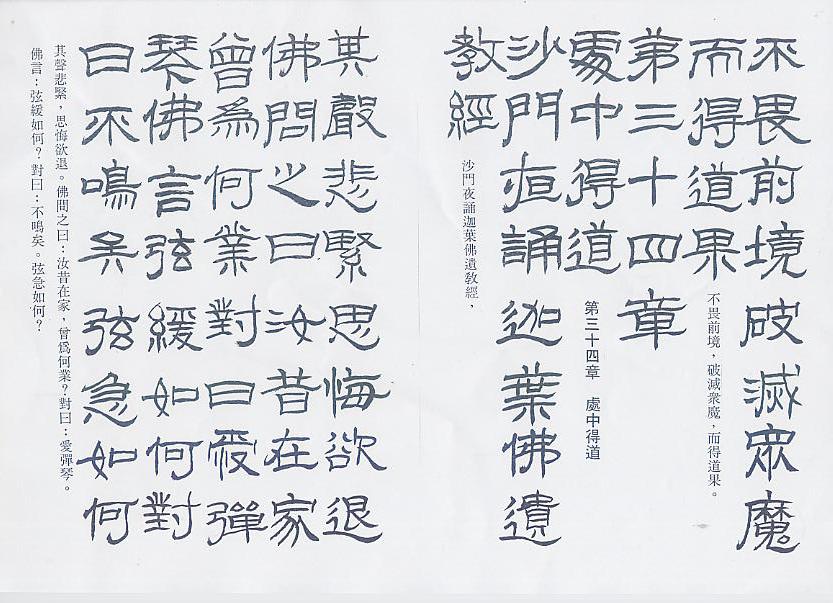 不畏前境破滅眾魔
而得道果
不畏前境，破滅衆魔，而得道果。
第三十四章
處中得道
第三十四章　處中得道
沙門夜誦迦葉佛遺
教經
沙門夜誦迦葉佛遺教經，
其聲悲緊思悔欲退
佛問之曰汝昔在家
曾為何業對曰愛彈
琴佛言弦緩如何對
曰不鳴矣弦急如何
其聲悲緊，思悔欲退。佛問之曰：汝昔在家，曾爲何業？對曰：愛彈琴。
佛言：弦緩如何？對曰：不鳴矣。弦急如何？